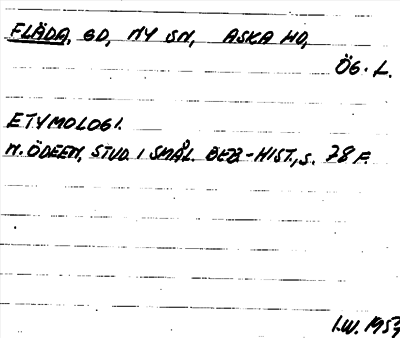 FLÄDA, GD, NY SN, ASKA HD,
ÖG. L.
ETYMOLOGI.
N. ÖDEEN, STUD. I SMÅL. BEB-HIST., S. 78 F.
I.W. 1959